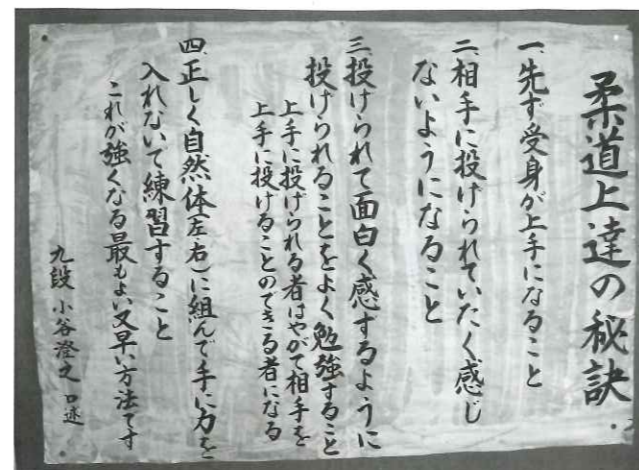 柔道上達の秘訣
一、先ず受身が上手になること
二、相手に投げられていたく感じ
ないようになること
三、投げられて面白く感ずるように
投げられることをよく勉強すること
上手に投げられる者はやがて相手を
上手に投げることのできる者になる
四、正しく自然体(左右)に組んで手に力を
入れないで練習すること
これが強くなる最もよい又早い方法です
九段 小谷澄之 口述